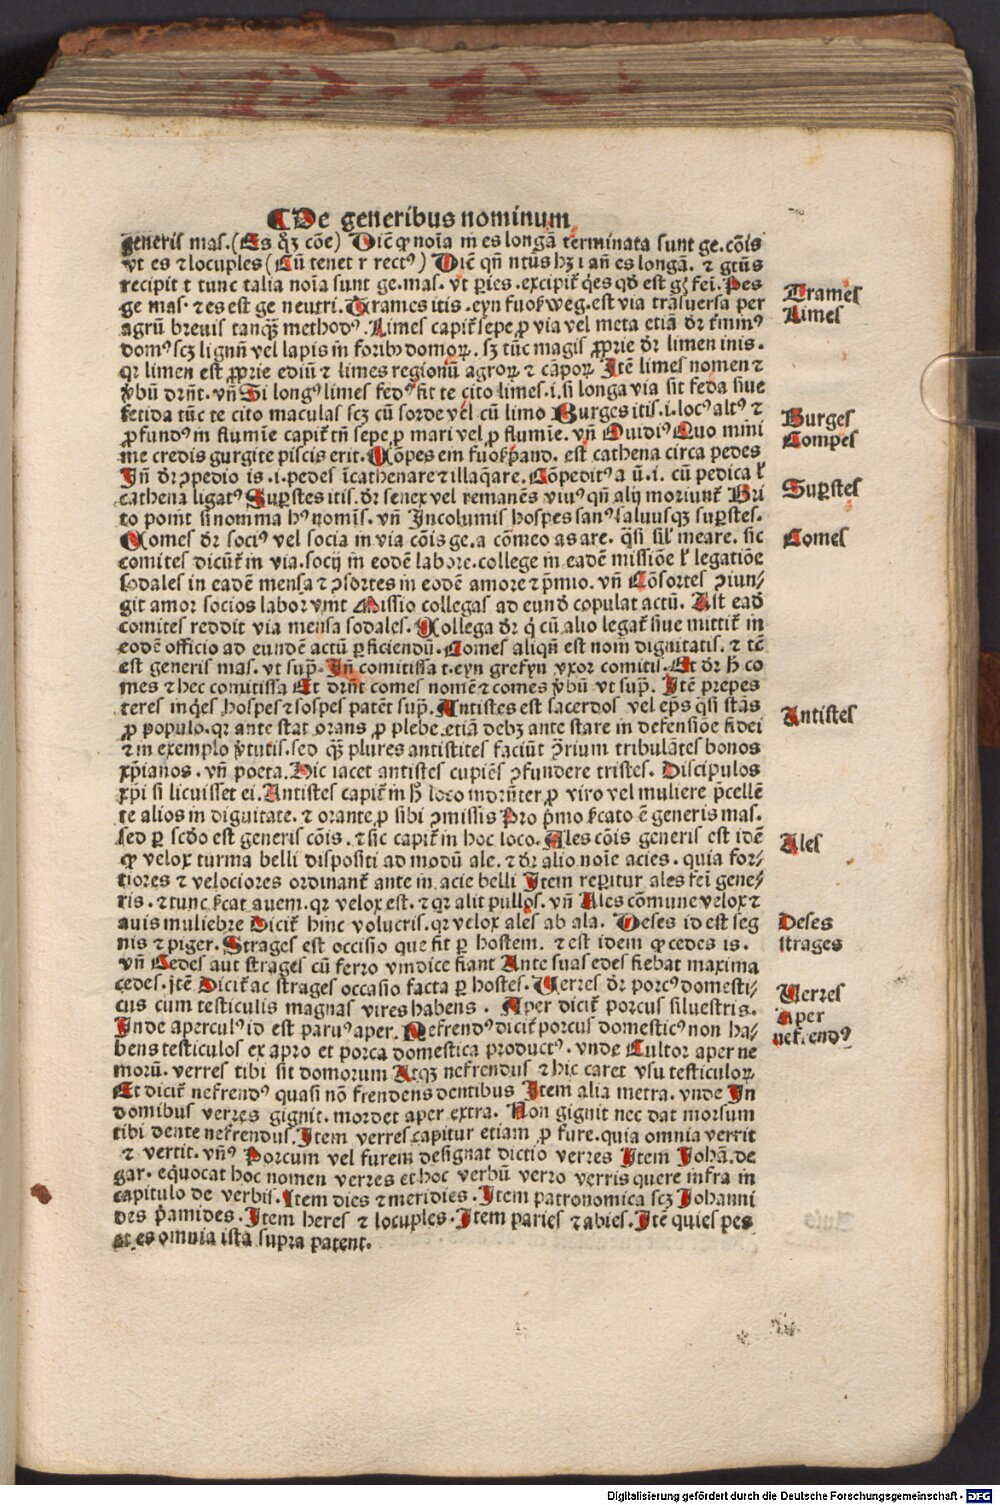 De generibus nominum
generis mas. (Es qꝫ cõe) Dicẽ ꝙ noĩa in es longã terminata sunt ge. cõis
vt es ⁊ locuples (Cũ tenet r rectꝰ) Dicẽ qñ ntũs hꝫ i añ es longã. ⁊ gtũs
recipit t tunc talia noĩa sunt ge. mas. vt ꝑies. excipiť q̇es qđ est gꝫ fei. Pes
ge mas. ⁊ es est ge neutri. Trames itis. eyn fuoßweg. est via trãsuersa per
agrũ breuis tanqꝫ methodꝰ. Limes capiť sepe ꝓ via vel meta etiã dr
domꝰ scꝫ lignũ vel lapis in foribꝫ domoꝝ. sꝫ tũc magis ꝓprie dr limen inis.
qr limen est ꝓprie ediũ ⁊ limes regionũ agroꝝ ⁊ cãpoꝝ Itẽ limes nomen ⁊
v̾bũ drñt. vñ Si longꝰ limes fedꝰ sit te cito limes. i. si longa via sit feda siue
fetida tũc te cito maculas scꝫ cũ sorde vel cũ limo Gurges itis. i. locꝰ altꝰ ⁊
ꝓfundꝰ in flumĩe capiť tñ sepe ꝓ mari vel ꝓ flumĩe. vñ Ouidiꝰ Quo mini
me credis gurgite piscis erit. Cõpes em fuoßpand. est cathena circa pedes
Jñ dr ꝯpedio is. i. pedes ĩcathenare ⁊ illaq̃are. Cõpeditꝰ a ũ. i. cũ pedica ł
cathena ligatꝰ Suꝑstes itis. dr senex vel remanẽs viuꝰ qñ alij moriunť Bri
to ponit sinonima hꝰ nomĩs. vñ Incolumis hospes sanꝰ saluusqꝫ suꝑstes.
Comes dr sociꝰ vel socia in via cõis ge. a cõmeo as are. q̃si siĺ meare. sic
comites dicũť in via. socij in eodẽ labore. college in eadẽ missiõe ł legatiõe
sodales in eadẽ mensa ⁊ ꝯsortes in eodẽ amore ⁊ p̃mio. vñ Cõsortes ꝯiun⸗
git amor socios labor vnit Missio collegas ad eundẽ copulat actũ. Ast eadẽ
comites reddit via mensa sodales. Collega dr q̇ cũ alio legať siue mittiť in
eodẽ officio ad eundẽ actũ ꝑficiendũ. Comes aliqñ est nomẽ dignitatis. ⁊ tẽ
est generis mas. vt supͣ. Jñ comitissa t. eyn grefyn vxor comitis. Et dr h̾ co
mes ⁊ hec comitissa Et drñt comes nomẽ ⁊ comes v̾bũ vt supͣ. Itẽ prepes
teres inq̇es hospes ⁊ sospes patẽt supͣ. Antistes est sacerdos vel ep̃s q̃si stãs
ꝓ populo. qr ante stat orans ꝓ plebe. etiã debꝫ ante stare in defensiõe fidei
⁊ in exemplo v̾tutis. sed qꝫ plures antistites faciũt ꝯ̾rium tribulãtes bonos
xp̃ianos. vñ poeta. Hic iacet antistes cupiẽs ꝯfundere tristes. Discipulos
xp̃i si licuisset ei. Antistes capiť in h̾ loco indrñter ꝓ viro vel muliere p̃celle̅
te alios in dignitate. ⁊ orante ꝓ sibi ꝯmissis Pro p̾mo ẽ generis mas.
sed ꝑ scđo est generis cõis. ⁊ sic capiť in hoc loco. Ales cõis generis est idẽ
ꝙ velox turma belli dispositi ad modũ ale. ⁊ dr alio noĩe acies. quia for⸗
tiores ⁊ velociores ordinanť ante in acie belli Item reꝑitur ales fei gene⸗
ris. ⁊ tunc auem. qr velox est. ⁊ qr alit pullos. vñ Ales cõmune velox ⁊
auis muliebre Diciť hinc volucris. qr velox ales ab ala. Deses id est seg
nis ⁊ piger. Strages est occisio que fit ꝑ hostem. ⁊ est idem ꝙ cedes is.
vñ Cedes aut strages cũ ferro vindice fiant Ante suas edes fiebat maxima
cedes. jtẽ Diciť ac strages occasio facta ꝑ hostes. Verres dr porcꝰ domesti⸗
cus cum testiculis magnas vires habens. Aper diciť porcus siluestris.
Inde aperculꝰ id est paruꝰ aper. Nefrendꝰ diciť porcus domesticꝰ non ha⸗
bens testiculos ex apro et porca domestica productꝰ. vnde Cultor aper ne
morũ. verres tibi sit domorum Atqꝫ nefrendus ⁊ hic caret vsu testiculoꝝ
Et diciť nefrendꝰ quasi nõ frendens dentibus Item alia metra. vnde In
domibus verres gignit. mordet aper extra. Non gignit nec dat morsum
tibi dente nefrendus. Item verres capitur etiam ꝓ fure. quia omnia verrit
⁊ vertit. vñꝰ Porcum vel furem designat dictio verres Item Johã. de
gar. eq̇uocat hoc nomen verres et hoc verbũ verro verris quere infra in
capitulo de verbis. Item dies ⁊ meridies. Item patronomica scꝫ Johanni
des p̾amides. Item heres ⁊ locuples. Item paries ⁊ abies. Itẽ quies pes
et es omnia ista supra patent.
Trames
Limes
Gurges
Compes
Suꝑstes
Comes
Antistes
Ales
Deses
strages
Verres
Aper
nefrendꝰ
Digitalisierung gefördert durch die Deutsche Forschungsgemeinschaft - DFG